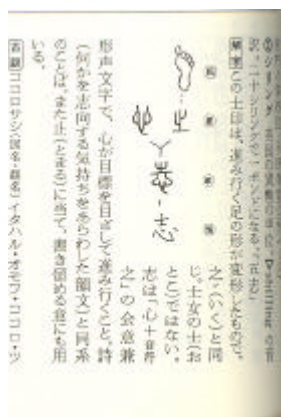 ②シリング 英国の貨幣の単位。▽shillingの音
訳。「二十シリングで、一ポンドになる。」「五志」
解字 この士印は、進み行く足の形が変形したもので、
之・(いく)と同
じ。士女の士(お
とこ)ではない。
志は「心＋音符
之」の会意兼
形声文字で、心が目標を目ざして進み行くこと。詩
(何かを志向する気持ちをあらわした韻文)と同系
のことば。また止(とまる)に当て、書き留める意にも用
いる。
古訓 ココロサシ〈国名・願名〉イタハル・オモフ・ココロ・ツ
志